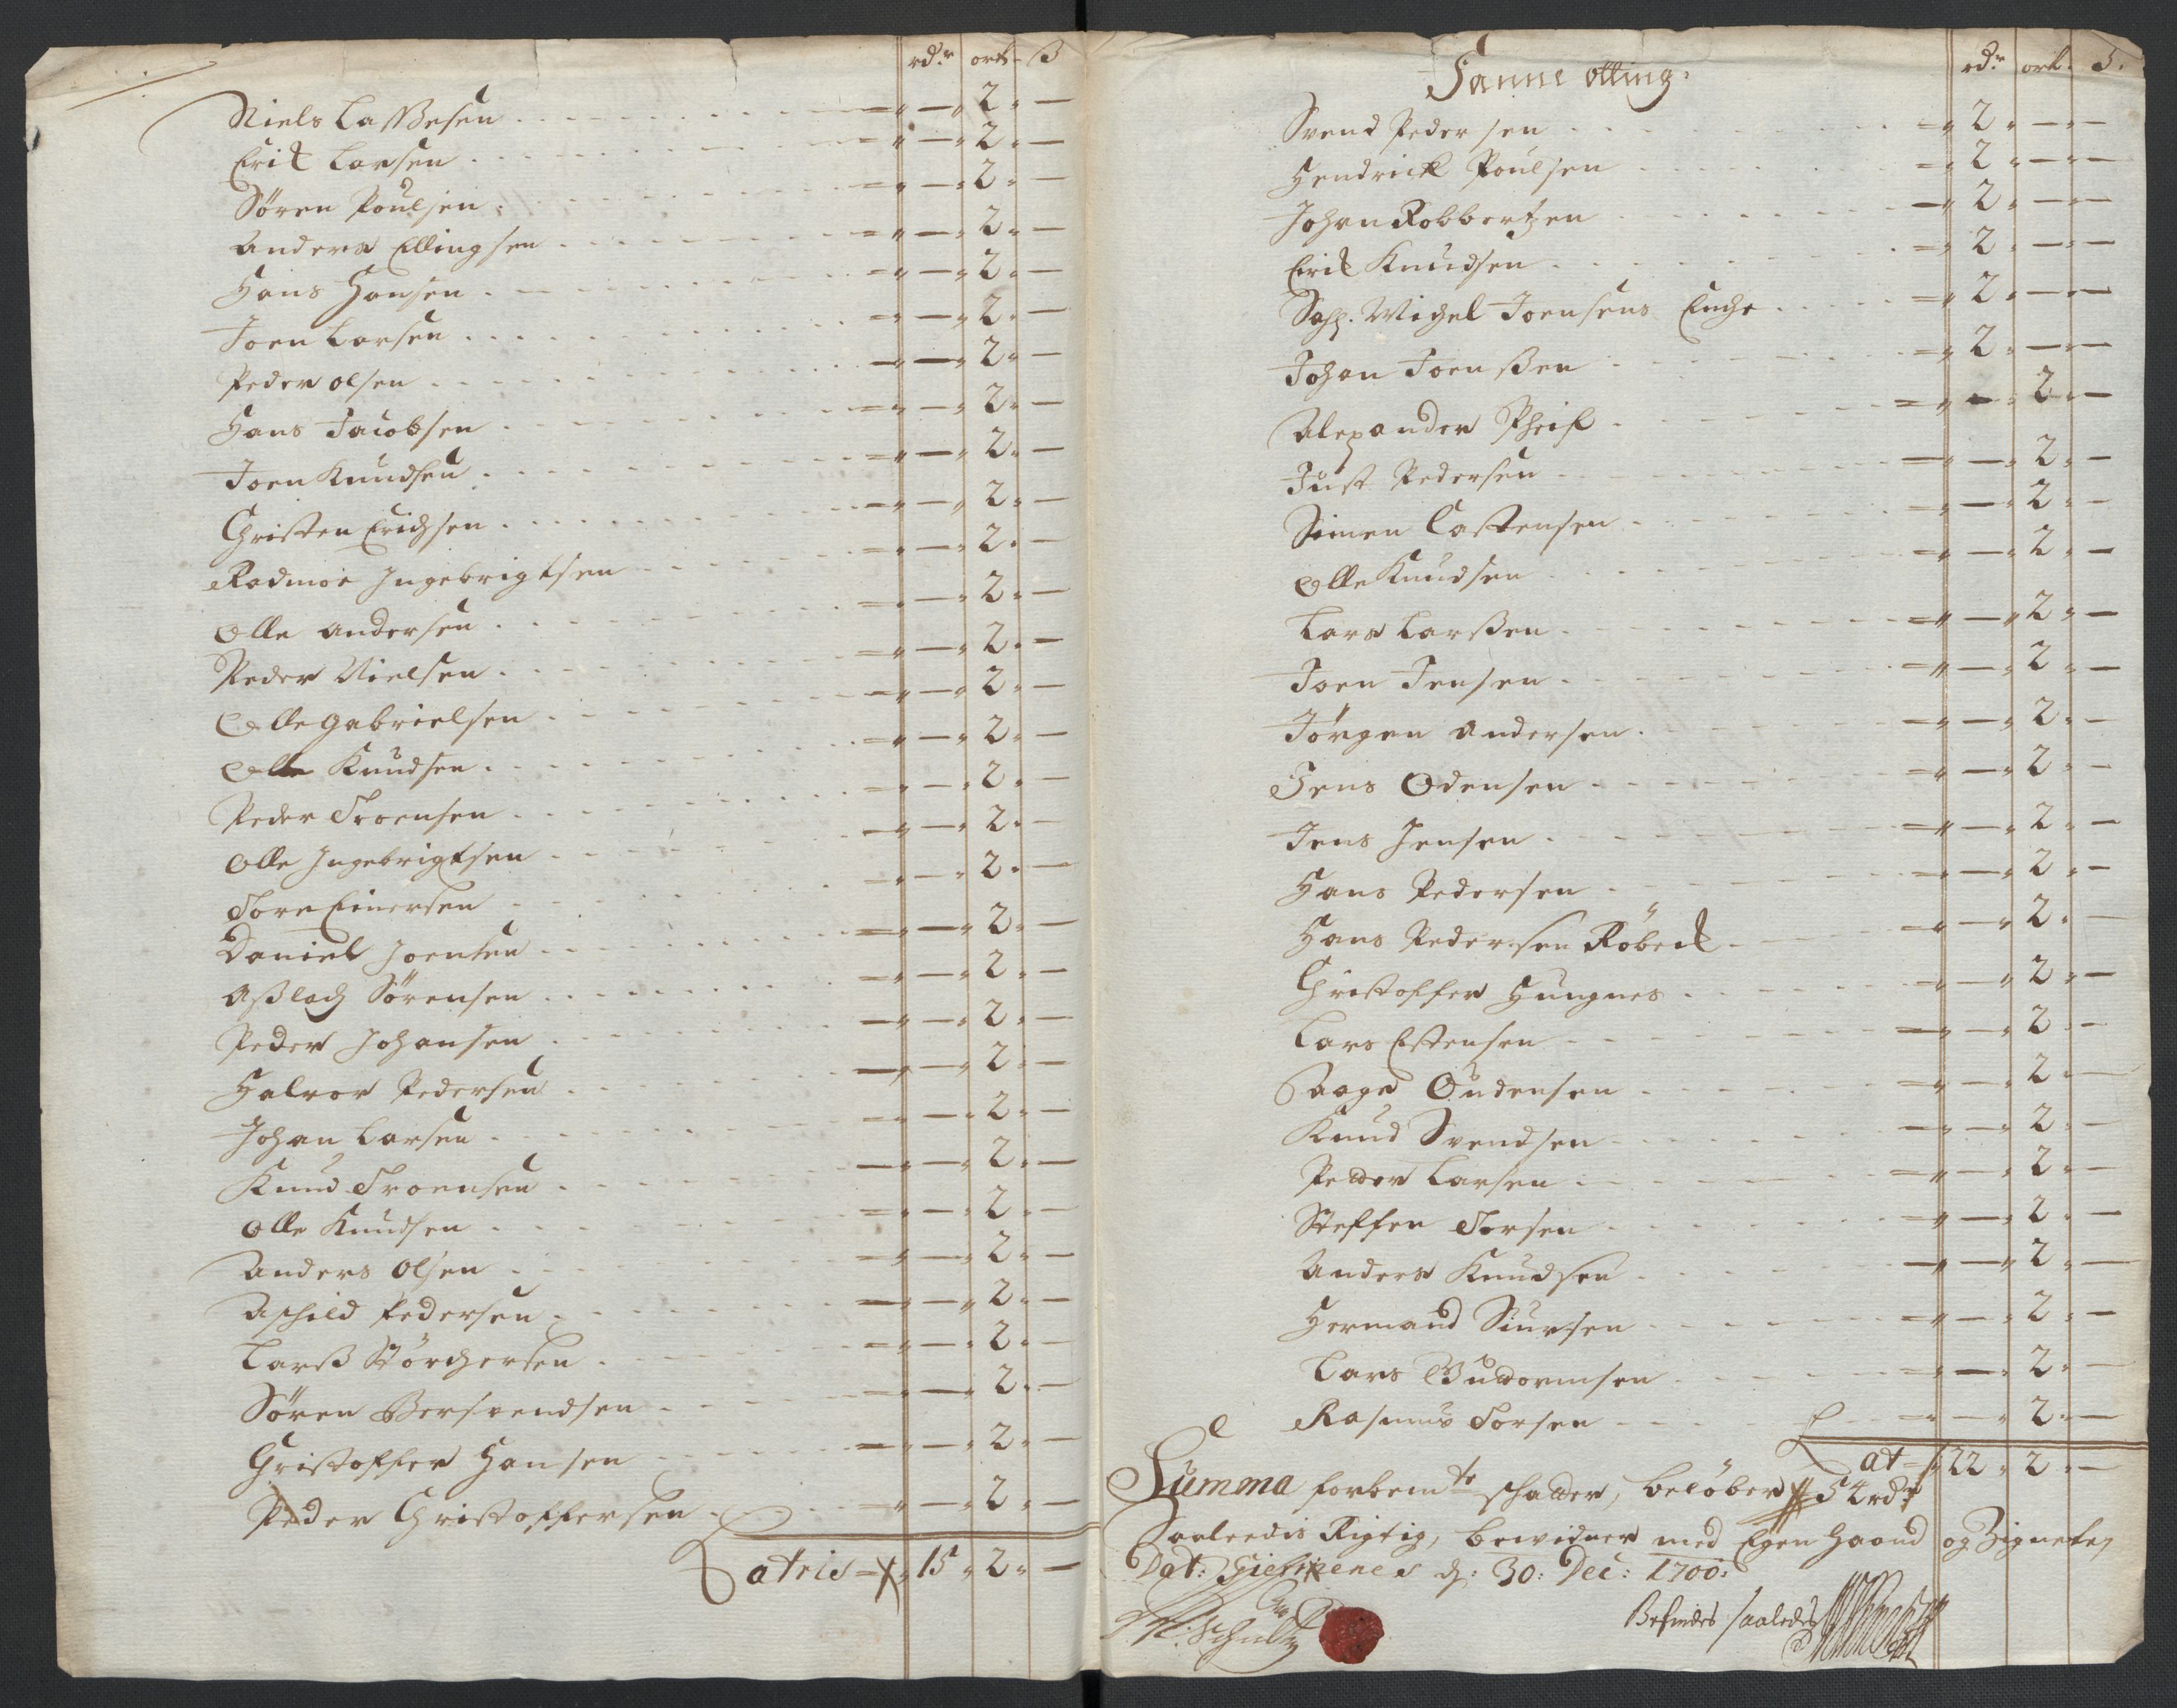 rdr ort ß
Niels Laßesen - 2 -
Erik Larsen - 2 -
Søren Poulsen - 2 -
Anders Ellingsen - 2 -
Hans Hansen - 2 -
Joen Larsen - 2 -
Peder Olsen - 2 -
Hans Jacobsen - 2 -
Joen Knudsen - 2 -
Christen Erichsen - 2 -
Rodmoe Ingebrigtsen - 2 -
Olle Andersen - 2 -
Peder Nielsen - 2 -
Olle Gabrielsen - 2 -
Olle Knudsen - 2 -
Peder Troensen - 2 -
Olle Ingebrigtsen - 2 -
Tore Einersen - 2 -
Daniel Joensen - 2 -
Aßlach Sørensen - 2 -
Peder Johansen - 2 -
Halvor Pedersen - 2 -
Johan Larsen - 2 -
Knud Troensen - 2 -
Olle Knudsen - 2 -
Anders Olsen - 2 -
Aschild Pedersen - 2 -
Larß Størchersen - 2 -
Søren Bersvendsen - 2 -
Christoffer Hansen - 2 -
Peder Christoffersen - 2 -
Latris 15 2 -
Sanne otting:
rdr ort. ß.
Svend Pedersen 2 - -
Hendrick Poulsen 2 - -
Johan Robbertzen 2 - -
Erik Knudsen 2 - -
Sahl. Michel Joensens Enche 2 - -
Johan Joenßen 2 - -
Alexander Pheif - 2 -
Just Pedersen - 2 -
Simen Castensen - 2 -
Olle Knudsen - 2 -
Lars Larßen - 2 -
Joen Jensen - 2 -
Jørgen Andersen - 2 -
Jens Odensen - 2 -
Jens Jensen - 2 -
Hans Pedersen - 2 -
Hans Pedersen Röbek - 2 -
Christoffer Hungnes - 2 -
Lars Estensen - 2 -
Aage Oudensen - 2 -
Knud Svendsen - 2 -
Peder Larsen - 2 -
Steffen Torsen - 2 -
Anders Knudsen - 2 -
Hermand Siursen - 2 -
Lars Gudormsen - 2 -
Rasmus Torsen - 2 -
Lat 22 2 -
Summa forbemte schatter, beløber 54 rdr
Saaledis Rigtig, bevidner med Egen haand og Zignete,
Dat: d: 30: Dec: 1700:
Schultz
Befindes saaledes